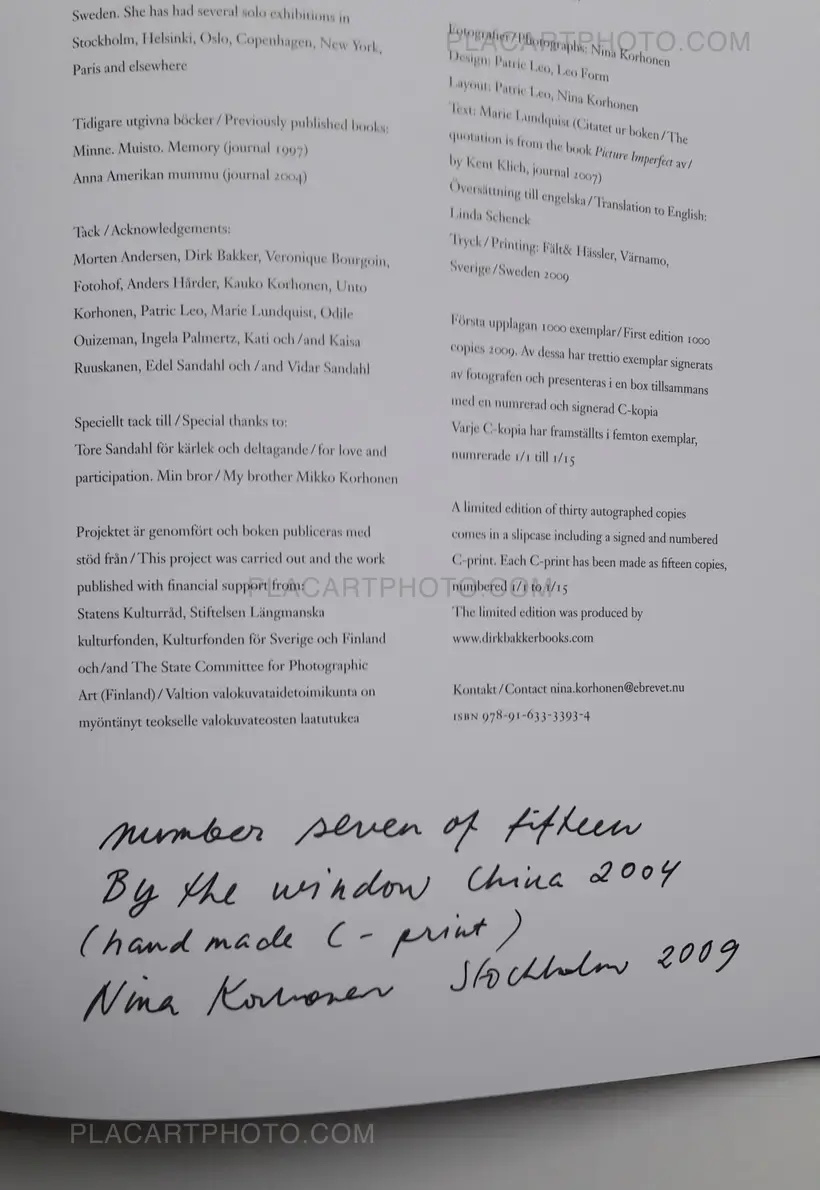 Sweden. She has had several solo exhibitions in
Stockholm, Helsinki, Oslo, Copenhagen, New York,
Paris and elsewhere
Tidigare utgivna böcker / Previously published books:
Minne. Muisto. Memory (journal 1997)
Anna Amerikan mummu (journal 2004)
Tack / Acknowledgements:
Morten Andersen, Dirk Bakker, Veronique Bourgoin,
Fotohof, Anders Hårder, Kauko Korhonen, Unto
Korhonen, Patric Leo, Marie Lundquist, Odile
Ouizeman, Ingela Palmertz, Kati och/and Kaisa
Ruuskanen, Edel Sandahl och/and Vidar Sandahl
Speciellt tack till / Special thanks to:
Tore Sandahl för kärlek och deltagande / for love and
participation. Min bror / My brother Mikko Korhonen
Projektet är genomfört och boken publiceras med
stöd från / This project was carried out and the work
published with financial support from:
Statens Kulturråd, Stiftelsen Längmanska
kulturfonden, Kulturfonden för Sverige och Finland
och/and The State Committee for Photographic
Art (Finland) / Valtion valokuvataidetoimikunta on
myöntänyt teokselle valokuvateosten laatutukea
Fotografier / Photographs: Nina Korhonen
Design: Patric Leo, Leo Form
Layout: Patric Leo, Nina Korhonen
Text: Marie Lundquist (Citatet ur boken / The
quotation is from the book Picture Imperfect av/
by Kent Klich, journal 2007)
Översättning till engelska / Translation to English:
Linda Schenck
Tryck / Printing: Fält& Hässler, Värnamo,
Sverige / Sweden 2009
Första upplagan 1000 exemplar / First edition 1000
copies 2009. Av dessa har trettio exemplar signerats
av fotografen och presenteras i en box tillsammans
med en numrerad och signerad C-kopia
Varje C-kopia har framställts i femton exemplar,
numrerade 1/1 till 1/15
A limited edition of thirty autographed copies
comes in a slipcase including a signed and numbered
C-print. Each C-print has been made as fifteen copies,
numbered 1/1 to 1/15
The limited edition was produced by
www.dirkbakkerbooks.com
Kontakt / Contact nina.korhonen@ebrevet.nu
ISBN 978-91-633-3393-4
number seven of fifteen
By the window China 2004
(hand made C - print)
Nina Korhonen Stockholm 2009
PLACARTPHOTO.COM
PLACARTPHOTO.COM
PLACARTPHOTO.COM